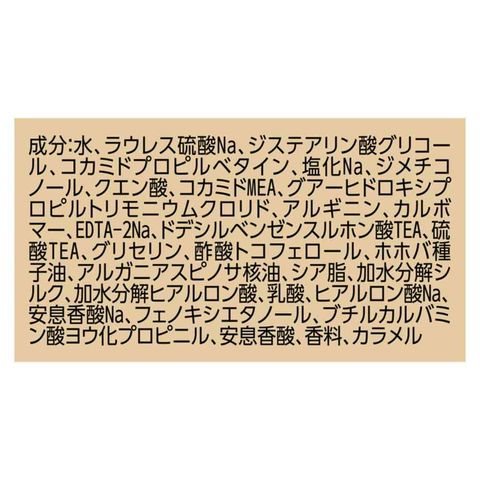 成分:水、ラウレス硫酸Na、ジステアリン酸グリコー
ル、コカミドプロピルベタイン、塩化Na、ジメチコ
ノール、クエン酸、コカミドMEA、グアーヒドロキシプ
ロピルトリモニウムクロリド、アルギニン、カルボ
マー、EDTA-2Na、ドデシルベンゼンスルホン酸TEA、硫
酸TEA、グリセリン、酢酸トコフェロール、ホホバ種
子油、アルガニアスピノサ核油、シア脂、加水分解シ
ルク、加水分解ヒアルロン酸、乳酸、ヒアルロン酸Na、
安息香酸Na、フェノキシエタノール、ブチルカルバミ
ン酸ヨウ化プロピニル、安息香酸、香料、カラメル